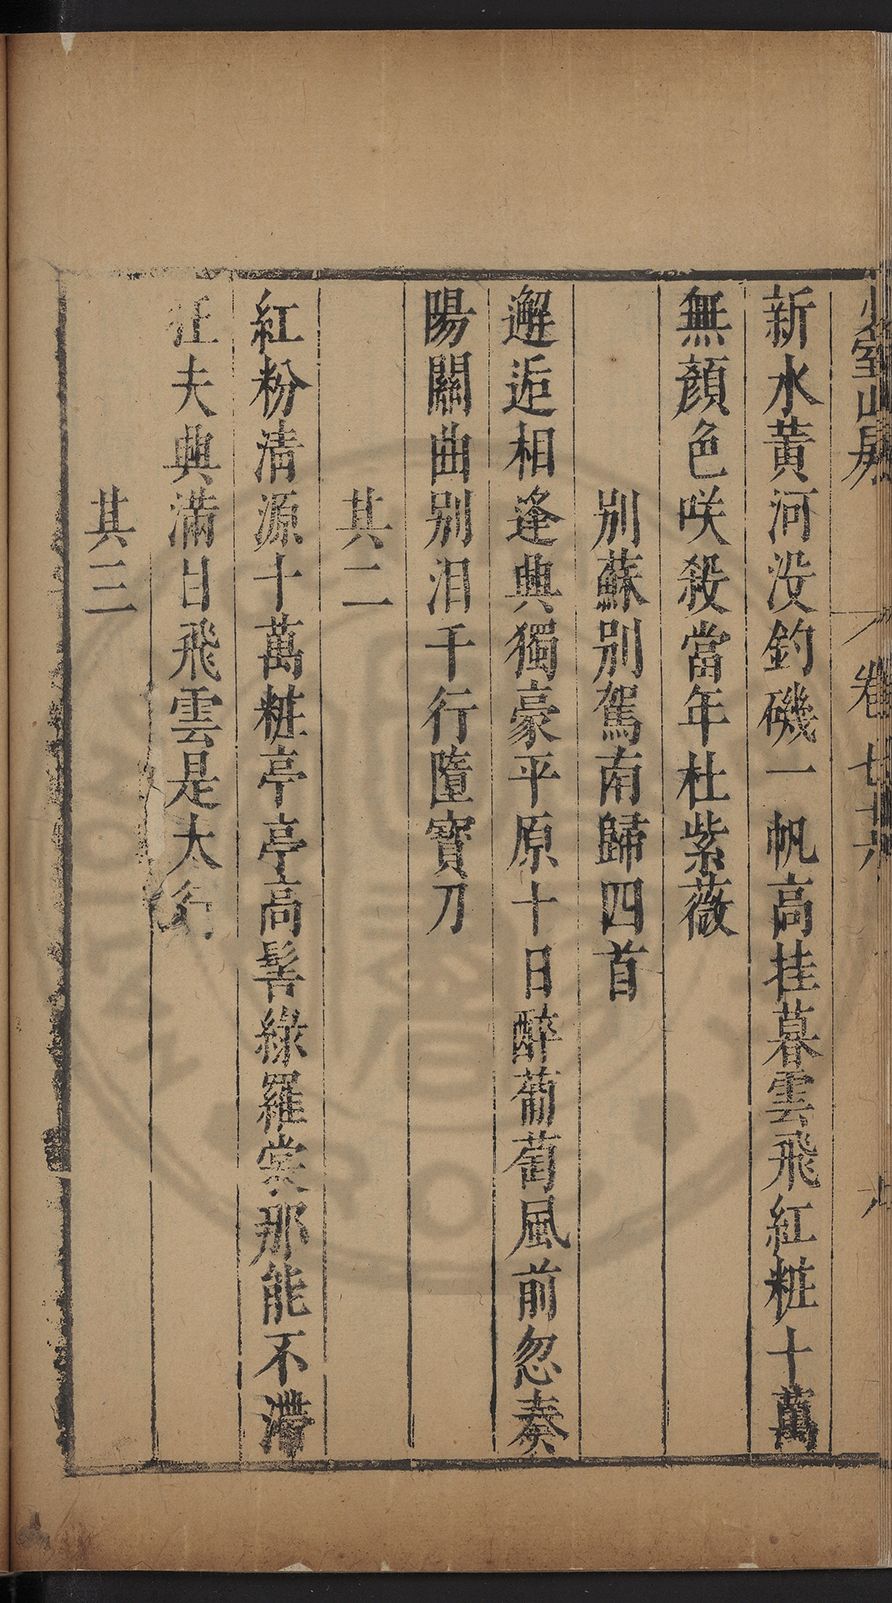 少室山房 卷七十六
新水黄河没釣磯一帆高挂暮雲飛紅粧十萬
無顏色咲殺當年杜紫薇
別蘇別駕南歸四首
邂逅相逢典獨豪平原十日醉葡萄風前忽奏
陽關曲別泪千行墮寶刀
其二
紅粉清源十萬粧亭亭高髻綠羅裳那能不滯
征夫典滿目飛雲是太行
其三